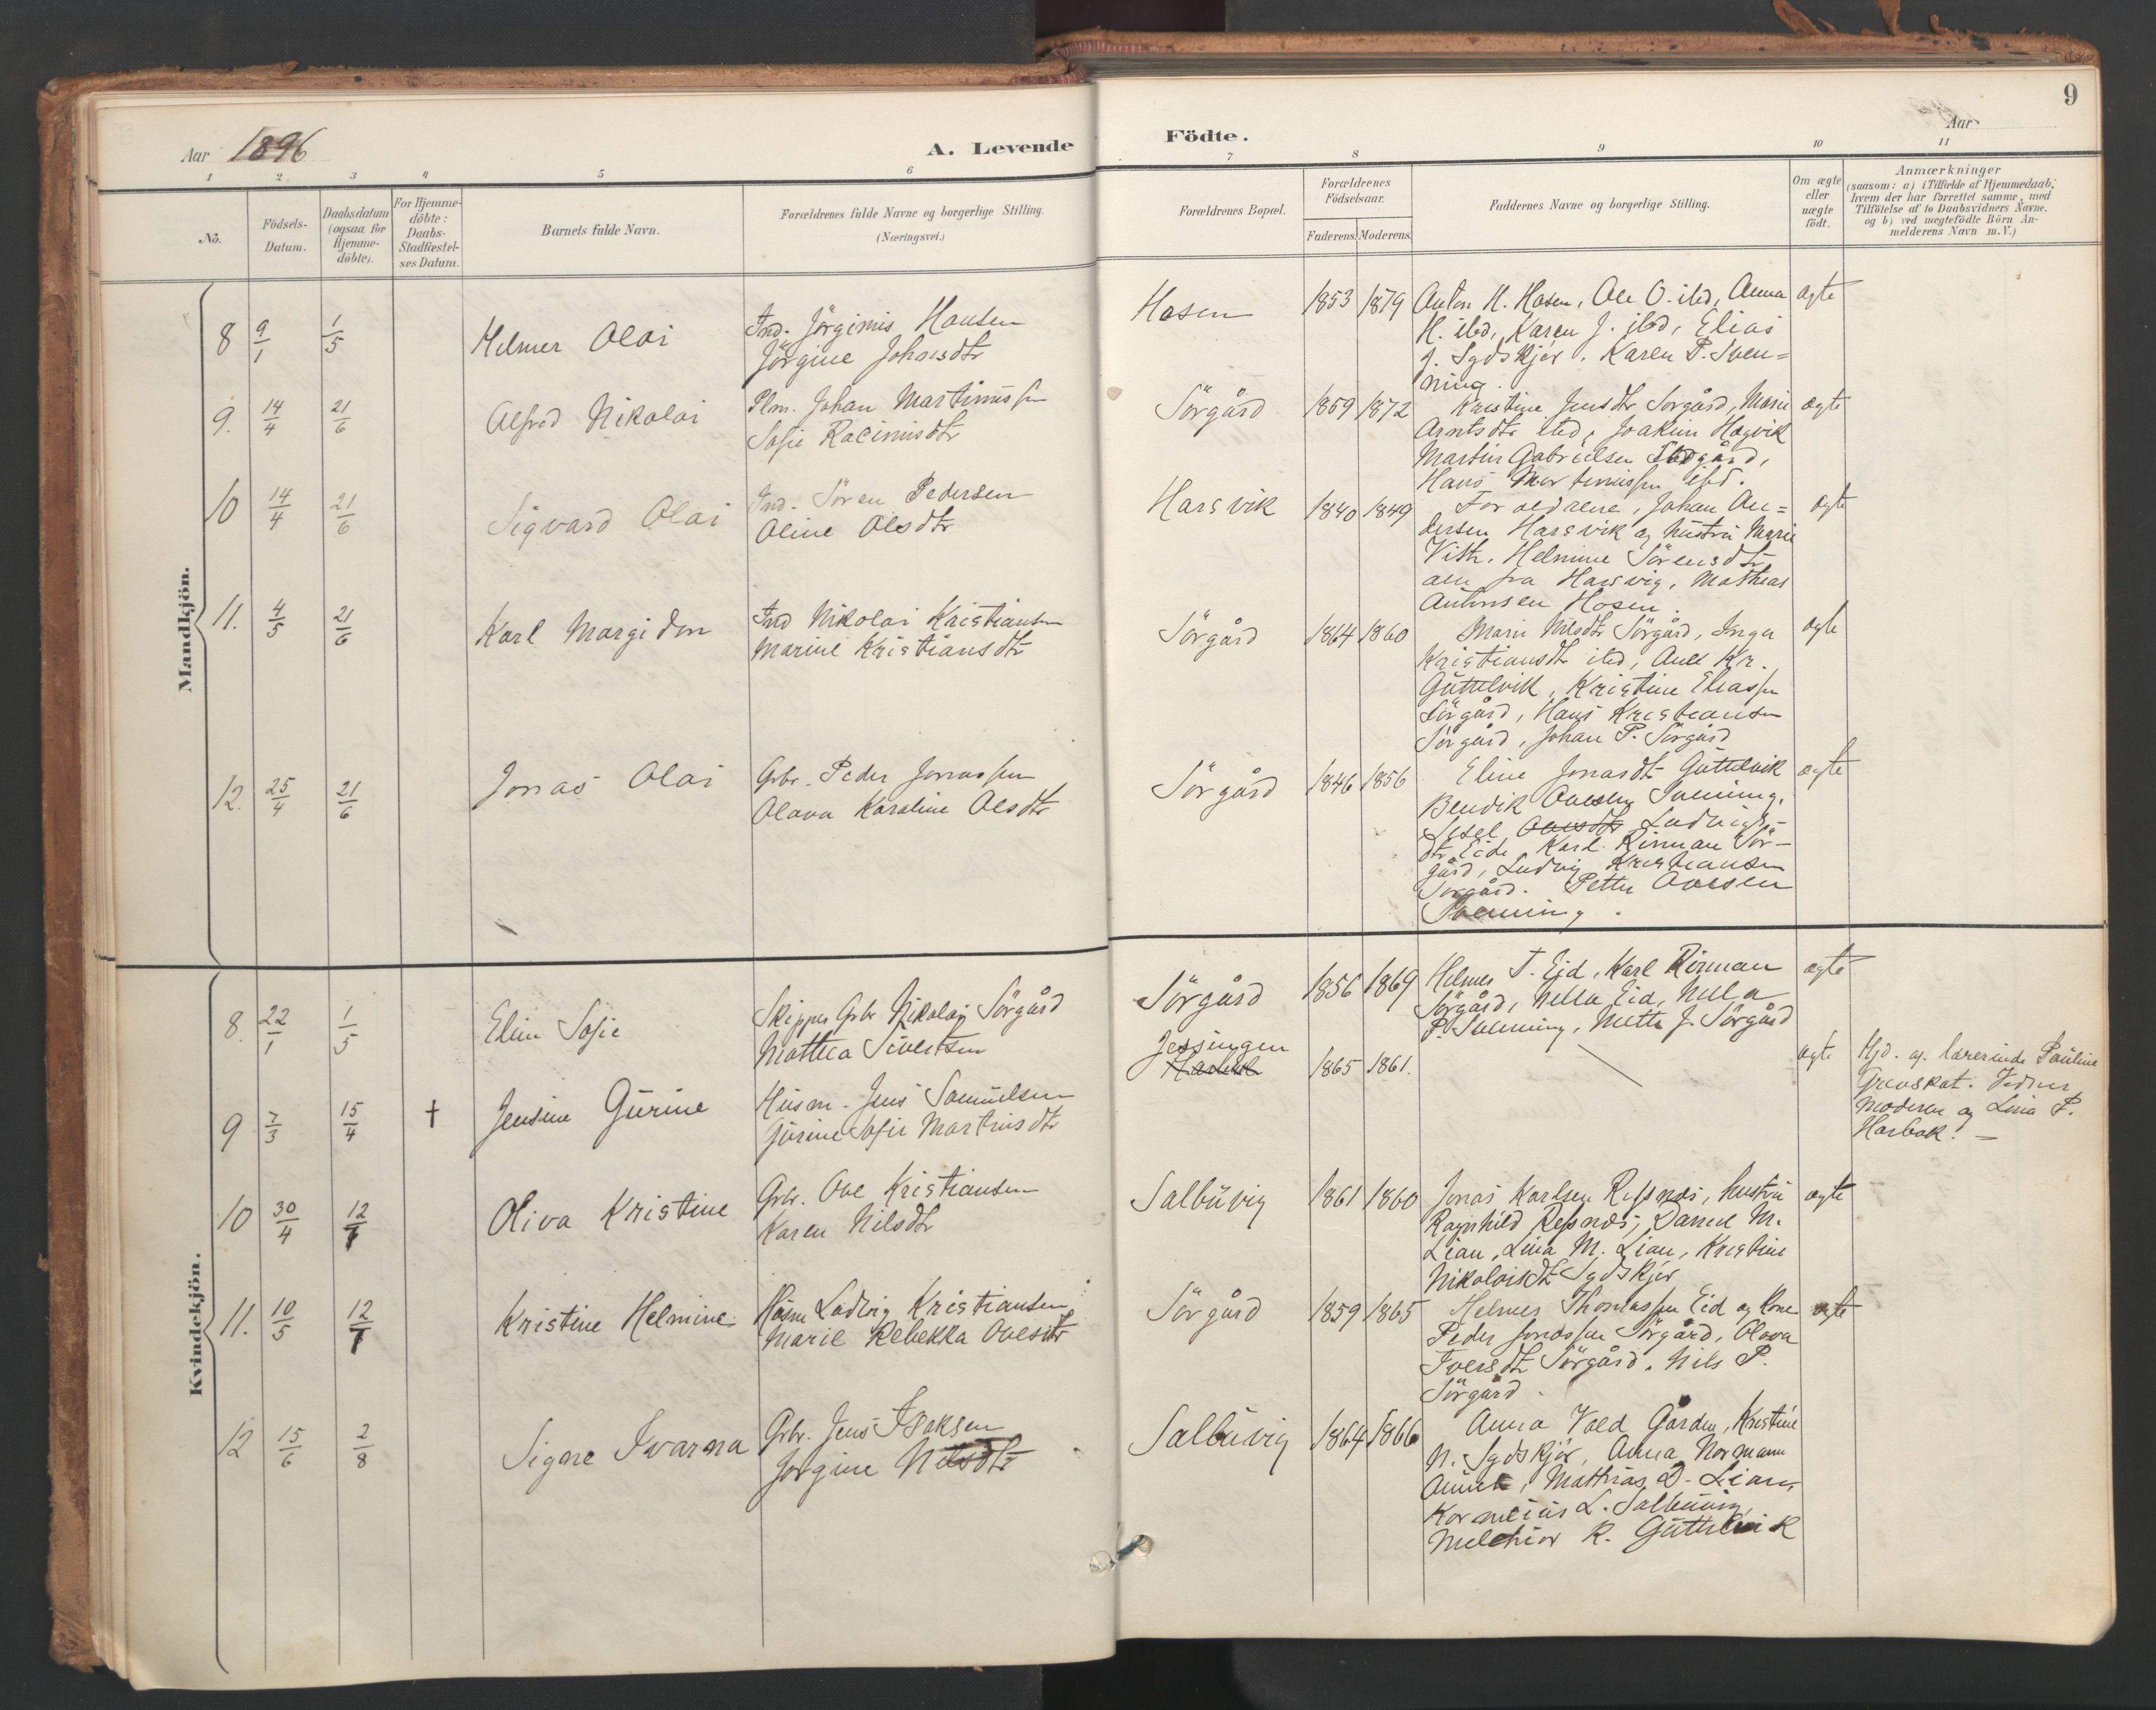 9
Aar 1896
A. Levende Födte.
Aar
1 2 3 4 5 6 7 8 9 10 11
No.
Födsels-
Datum.
Daabsdatum
(ogsaa for
Hjemme-
döbte).
For Hjemme-
döbte:
Daabs-
Stadfæstel-
ses Datum.
Barnets fulde Navn.
Forældrenes fulde Navne og borgerlige Stilling.
(Næringsvei.)
Forældrenes Bopæl.
Forældrenes
Födselsaar.
Faderens. Moderens.
Faddernes Navne og borgerlige Stilling.
Om ægte
eller
uægte
födt.
Anmærkninger
(saasom: a) i Tilfælde af Hjemmedaab,
hvem der har forrettet samme, med
Tilföielse af to Daabsvidners Navne,
og b) ved uægtefödte Börn An-
melderens Navn m.V.)
Mandkjön.
8 9/1 1/5 Helmer Olai
Ind. Jörginus Hansen
Jörgine Johansdtr
Hosen 1853 1879
Anton H. Hosen, Ole O. ibd, Anna
H. ibd, Karen J. ibd, Elias
J. Sydskjör, Karen P. Sven=
ning.
ægte
9. 14/4 21/6 Alfred Nikolai
Plm. Johan Martinussen
Sofie Racinusdtr
Sörgård 1869 1872
Kristine Jensdtr Sörgård, Marie
Arntsdtr ibd, Joakim Hogvik
Martin Gabrielsen Sörgård,
Hans Martinussen ibd.
ægte
10 14/4 21/6 Sigvard Olai
Ind. Sören Pedersen
Oline Olsdtr
Harsvik 1840 1849
Forældrene, Johan An=
dersen Harsvik og hustru Marie
Vith. Helmine Sörensdtr
alle fra Harsvig, Mathias
Antonsen Hosen.
ægte
11. 4/5 21/6 Karl Margidon
Ind Nikolai Kristiansen
Marine Kristiansdtr
Sörgård 1864 1860
Marie Nilsdtr Sörgård, Inga
Kristiansdtr ibd, Ane Kr.
Guttelvik, Kristine Eliassen
Sörgård, Hans Kristiansen
Sörgård, Johan P. Sörgård
ægte
12. 25/4 21/6 Jonas Olai
Gbr. Peder Jonassen
Olava Karoline Olsdtr
Sörgård 1846 1856
Eline Jonasdtr Guttelvik
Bendik Ovesen Svenning,
Sesel Ovesdtr Ludvigs-
dtr Eide, Karl Rinman Sör-
gård, Ludvig Kristiansen
Sörgård. Petter Ovesen
Svenning.
ægte
Kvindekjön.
8. 22/1 1/5 Elen Sofie
Skipper Gbr Nikolai Sörgård
Mattea Sivertsen
Sörgård 1856 1869
Helmer T. Eid, Karl Rinman
Sörgård, Nella Eid, Nella
P. Svenning, Mette J. Sörgård
ægte
9 7/3 15/4 † Jensine Gurine
Husm. Jens Samuelsen
Gurine Sofie Martinsdtr
Jössingen
1865 1861.
ægte
Hjd. af lærerinde Pauline
Grenskat. Vidner
moderen og Lina P.
Harbak. —
10 30/4 12/7 Oliva Kristine
Gbr. Ove Kristiansen
Karen Nilsdtr
Salbuvig 1861 1860
Jonas Karlsen Refsnes, hustru
Ragnhild Refsnes, Daniel M.
Lian, Lina M. Lian, Kristine
Nikolaisdtr Sydskjör
ægte
11. 10/5 12/7 Kristine Helmine
Husm Ludvig Kristiansen
Marie Rebekka Ovesdtr
Sörgård 1859 1865
Helmer Thomassen Eid og kone
Peder Jonassen Sörgård, Olava
Iversdtr Sörgård, Nils P.
Sörgård.
ægte
12 15/6 2/8 Signe Ivarna
Gbr. Jens Isaksen
Jörgine Nilsdtr
Salbuvig 1864 1866
Anna Vold Gården, Kristine
N. Sydskjör, Anna Normann
Aune, Mathias D. Lian,
Kornelius L. Salbuvig,
Melchior K. Guttelvik